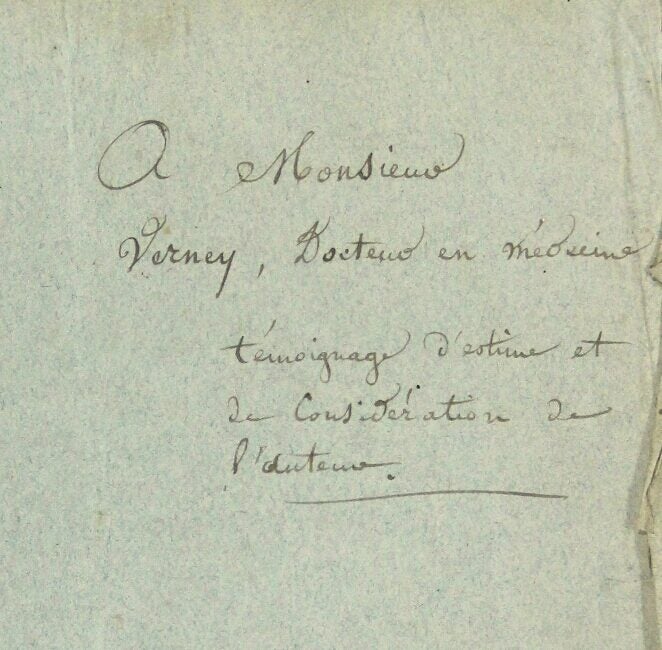 A Monsieur
Verney, Docteur en médecine
témoignage d'estime et
de Considération de
l'auteur.